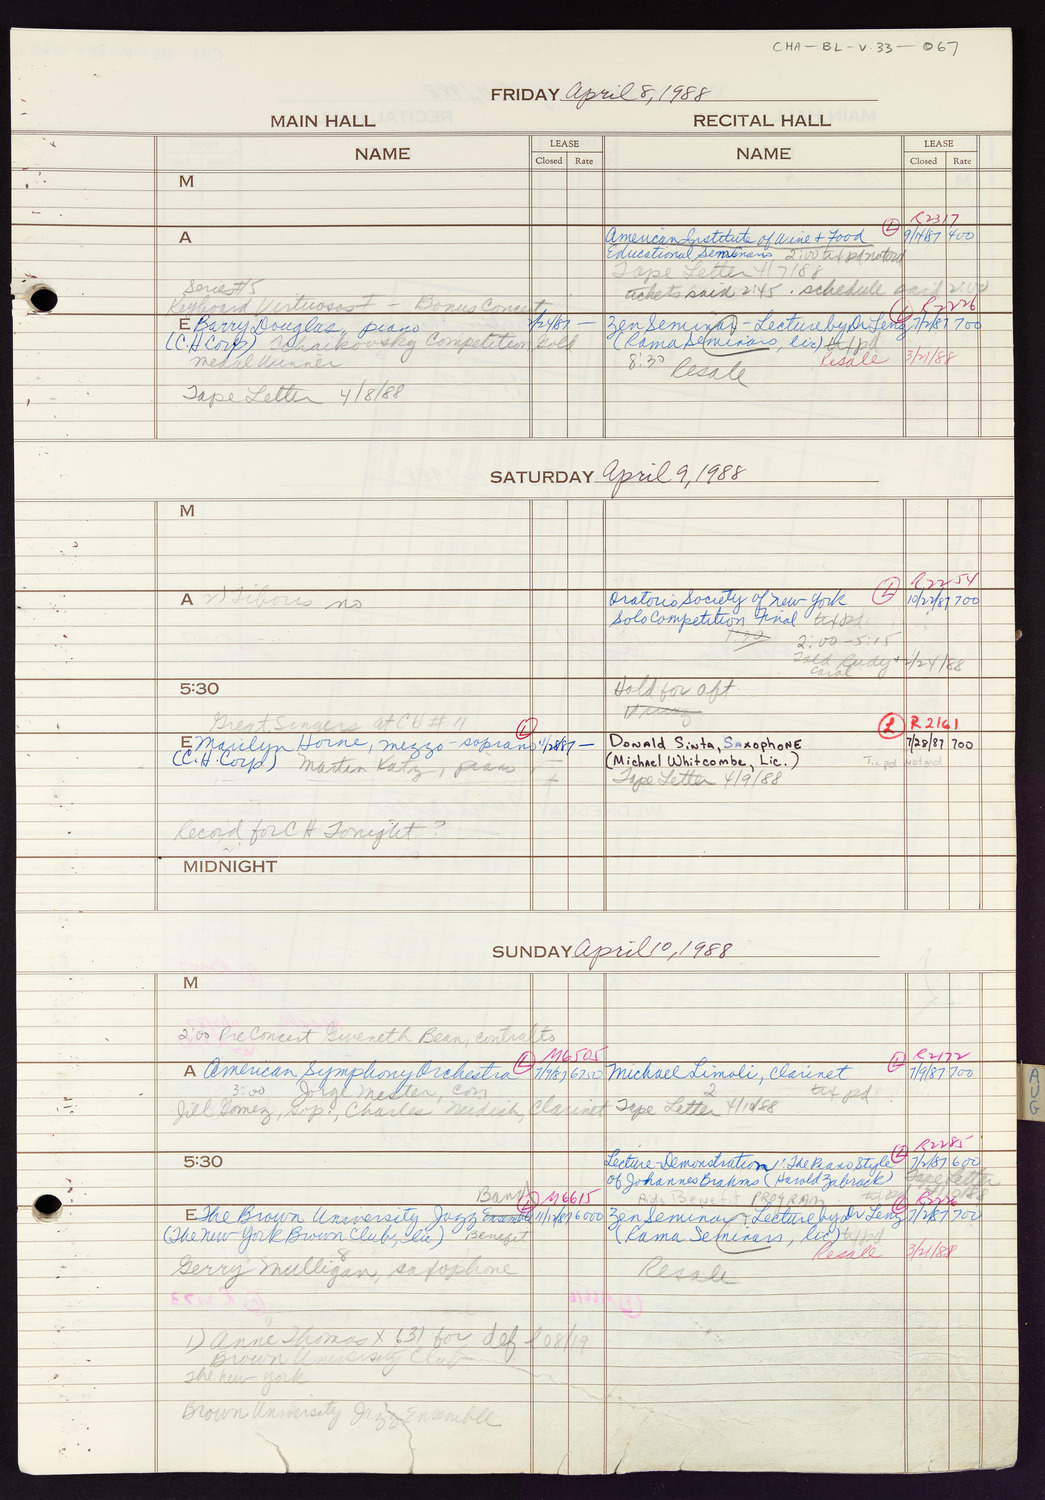 CHA-BL-V.33-067
FRIDAY April 8, 1988
MAIN HALL
RECITAL HALL
NAME
LEASE
Closed Rate
NAME
LEASE
Closed Rate
M
A
R2317
L
American Institute of Wine + Food 9/14/87 400
Educational Seminars 2:00 tax pd not ord
Tape Letter 4/7/88
tickets said 2:45 . schedule said 2:00
Series #5
Keyboard Virtuosos I - Bonus Concert
E Barry Douglas, piano 2/24/87 -
(C.H. Corp) Tchaikovsky Competition Gold
Medal Winner
Tape Letter 4/8/88
L R2226
Zen Seminar - Lecture by Dr Lenz 7/2/87 700
(Rama Seminars, lic) tx/pd
8:30 Resale
Resale 3/21/88
SATURDAY April 9, 1988
M
A 2) Tibous no
L R2254
Oratorio Society of New York 10/22/87 700
Solo Competition Final tax pd.
1:30
2:00-5:15
Told Rudy + 2/24/88
Carol
5:30
Hold for aft
Great Singers at CH # 11
L
E Marilyn Horne, mezzo-soprano 4/28/87 -
(C.H. Corp) Martin Katz, piano
Record for CH Tonight?
L R2161
Donald Sinta, Saxophone 7/28/87 700
(Michael Whitcombe, Lic.)
Tx pd not ord
Tape Letter 4/9/88
MIDNIGHT
SUNDAY April 10, 1988
M
2:00 Pre Concert Gweneth Bean, contralto
L M6505
A American Symphony Orchestra 7/9/87 6250
3:00 Jorge Mester, con
Jill Gomez, Sop., Charles Neidich, Clarinet
L R2172
Michael Limoli, clarinet 7/9/87 700
2 tax pd
Tape Letter 4/10/88
5:30
L R2285
Lecture-Demonstration: "The Piano Style 7/2/87 600
of Johannes Brahms (Harold Zabrack) Tape Letter
Ads Benefit PROGRAM
Band
L M6615
E The Brown University Jazz Ensemble 11/12/87 6000
(The New York Brown Club, Lic) Benefit
8
Gerry Mulligan, saxophone
L R2226
Zen Seminar - Lecture by Dr Lenz 7/2/87 700
(Rama Seminars, lic) tx/pd
Resale 3/21/88
Resale
1) Anne Thomas X 631 for def
Brown University Club
The New York
Brown University Jazz Ensemble
AUG